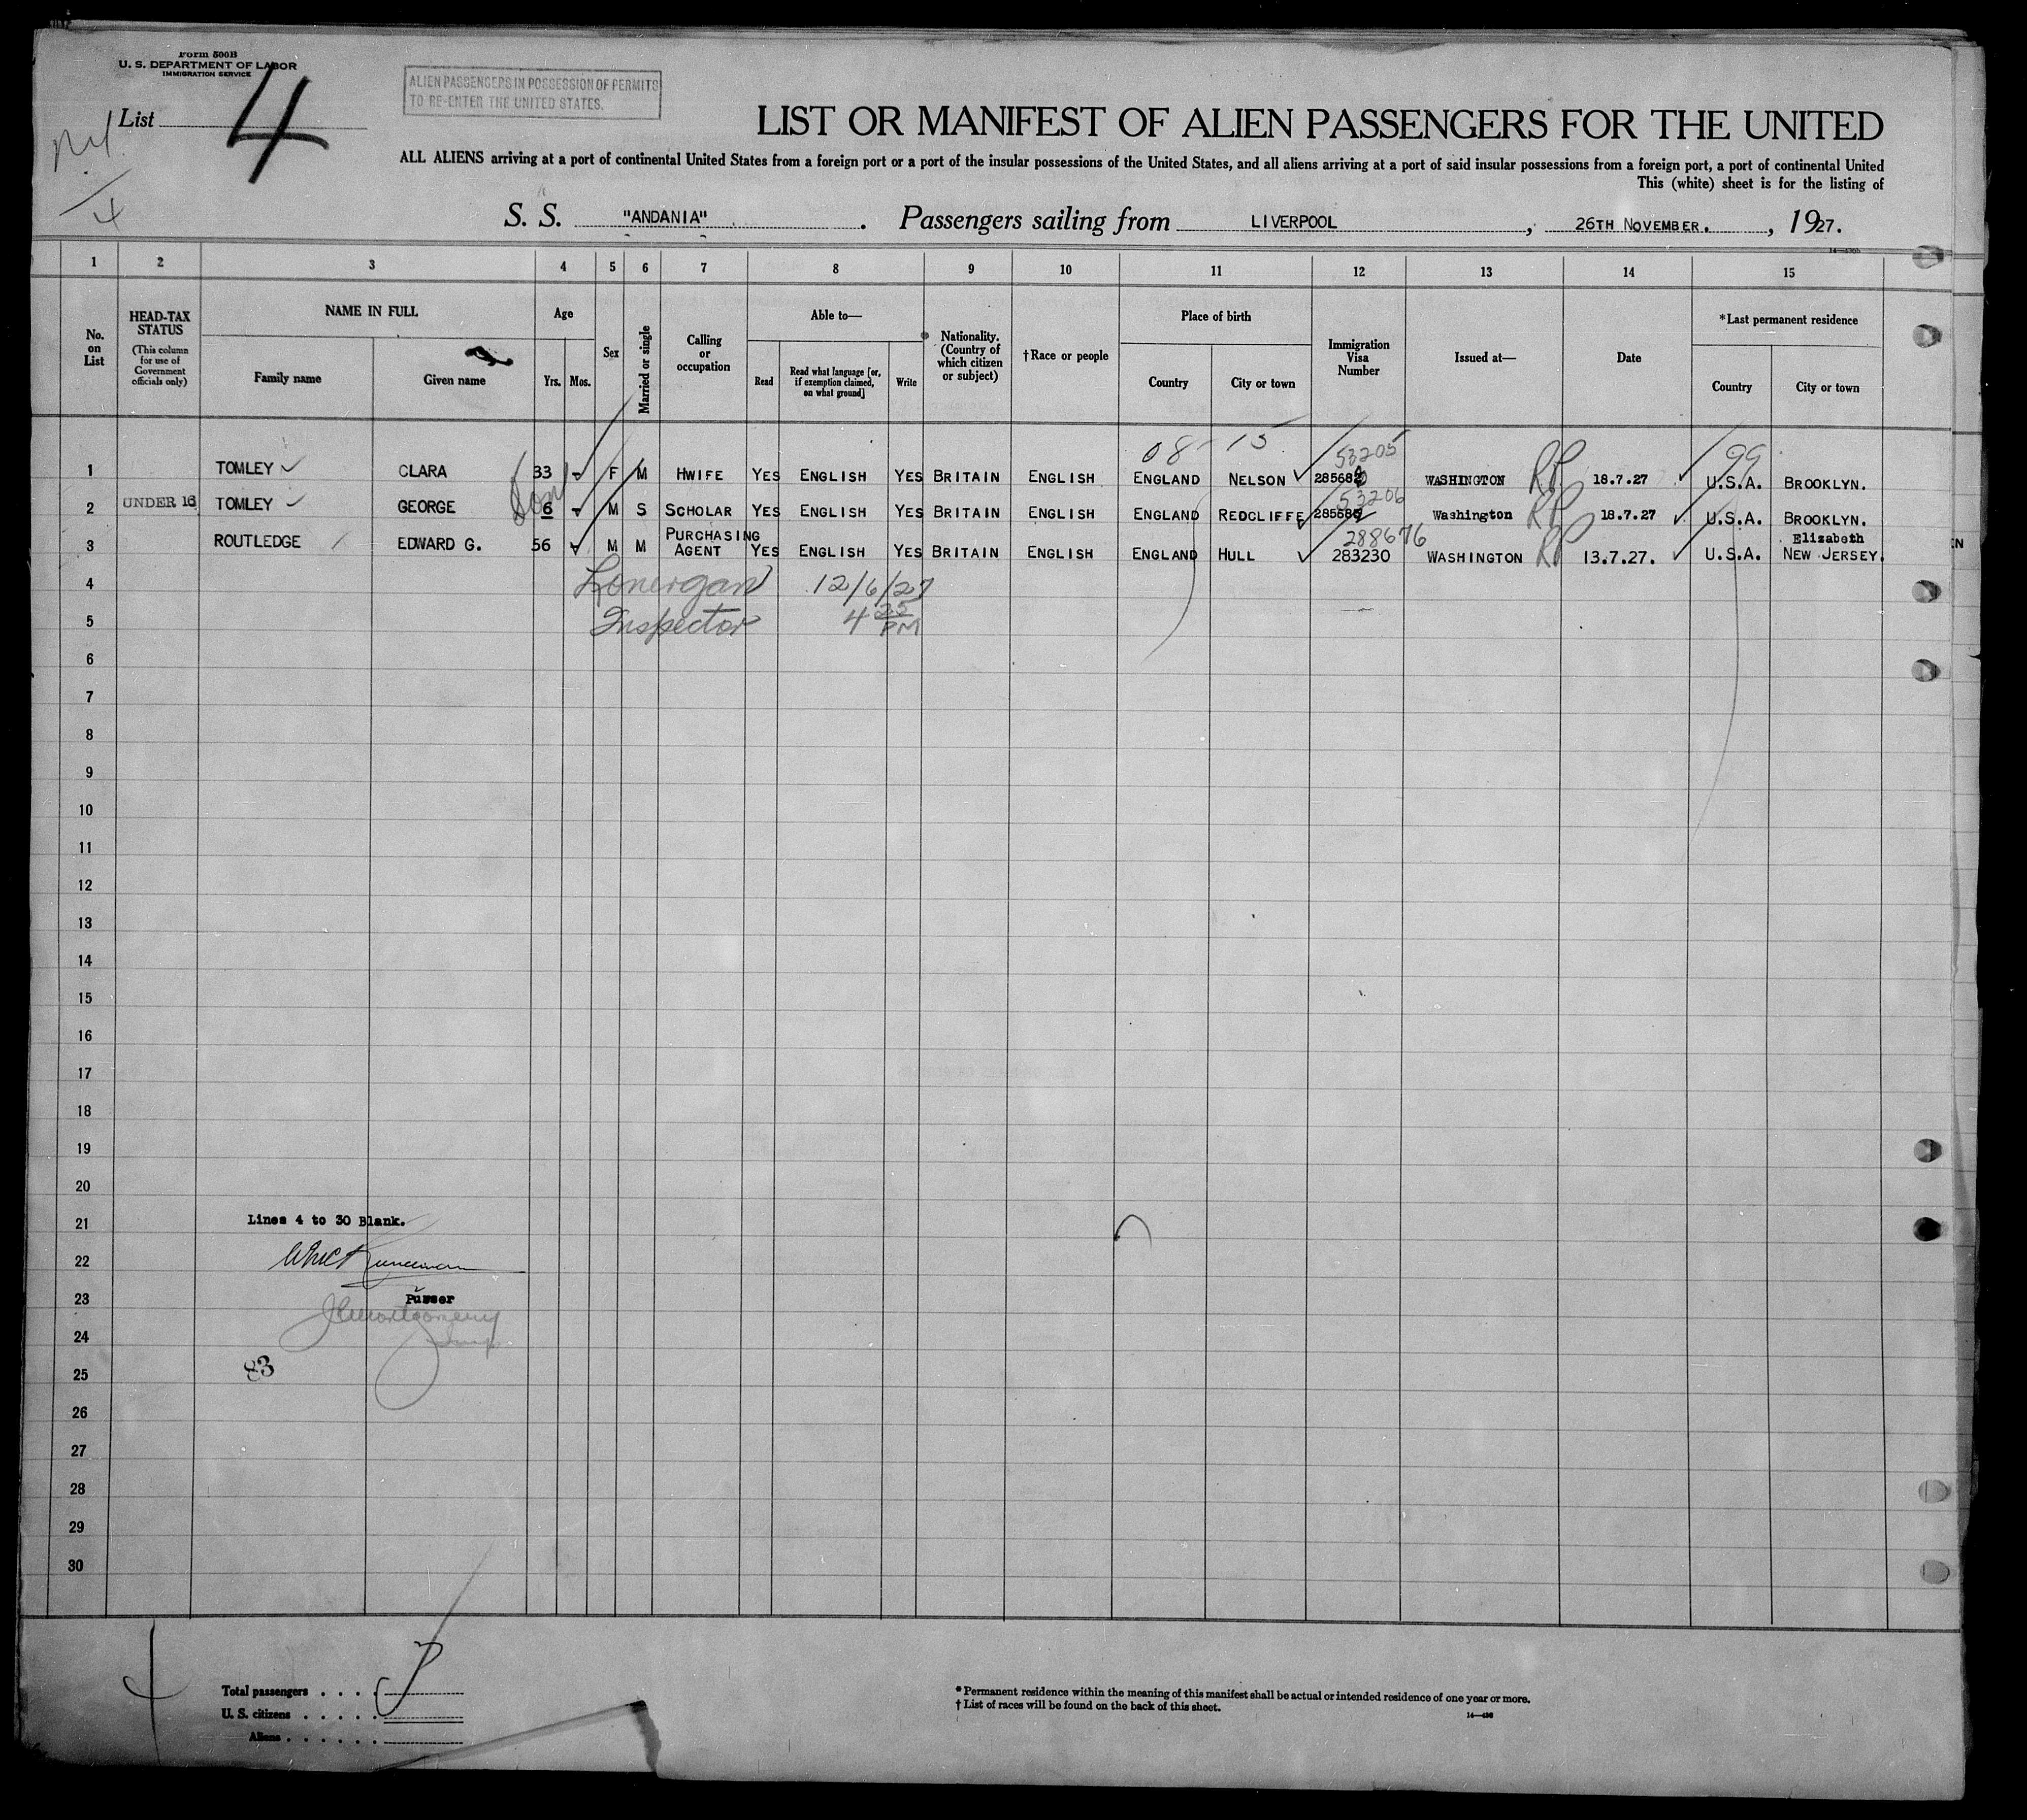 Form 500B
U. S. DEPARTMENT OF LABOR
IMMIGRATION SERVICE
ALIEN PASSENGERS IN POSSESSION OF PERMITS
TO RE-ENTER THE UNITED STATES.
List 4
4
LIST OR MANIFEST OF ALIEN PASSENGERS FOR THE UNITED
ALL ALIENS arriving at a port of continental United States from a foreign port or a port of the insular possessions of the United States, and all aliens arriving at a port of said insular possessions from a foreign port, a port of continental United
This (white) sheet is for the listing of
S. S. "ANDANIA". Passengers sailing from LIVERPOOL, 26TH NOVEMBER., 1927.
1 2 3 4 5 6 7 8 9 10 11 12 13 14 15
No. on List
HEAD-TAX STATUS (This column for use of Government officials only)
NAME IN FULL
Family name Given name
Age
Yrs. Mos.
Sex
Married or single
Calling or occupation
Able to—
Read
Read what language [or, if exemption claimed, on what ground]
Write
Nationality. (Country of which citizen or subject)
†Race or people
Place of birth
Country City or town
Immigration Visa Number
Issued at—
Date
*Last permanent residence
Country City or town
08 - 15 53205 99
1 TOMLEY CLARA 33 - F M HWIFE YES ENGLISH YES BRITAIN ENGLISH ENGLAND NELSON WASHINGTON RP 18.7.27 U.S.A. BROOKLYN.
Son 53206
2 UNDER 16 TOMLEY GEORGE 6 - M S SCHOLAR YES ENGLISH YES BRITAIN ENGLISH ENGLAND REDCLIFFE Washington RP 18.7.27 U.S.A. BROOKLYN.
288676
3 ROUTLEDGE EDWARD G. 56 - M M PURCHASING AGENT YES ENGLISH YES BRITAIN ENGLISH ENGLAND HULL 283230 WASHINGTON RP 13.7.27. U.S.A. Elizabeth NEW JERSEY.
4 Lonergan 12/6/27
5 Inspector 4 25 PM
6
7
8
9
10
11
12
13
14
15
16
17
18
19
20
21 Lines 4 to 30 Blank.
22
23 Purser
J Montgomery
24
83
25
26
27
28
29
30
Total passengers . . . .
U. S. citizens . . . . .
Aliens . . . . . .
* Permanent residence within the meaning of this manifest shall be actual or intended residence of one year or more.
† List of races will be found on the back of this sheet.